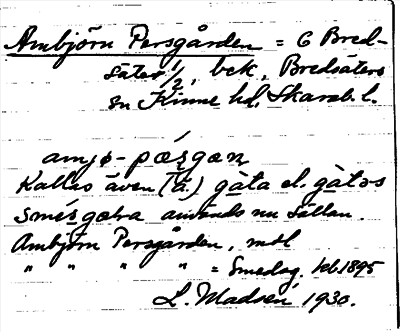 Ambjörn Persgården = 6 Bred-
säter 1/2, bek, Bredsäters
sn Kinne hd, Skarab. l.
amjø-pǽsgæn
Kallas även (ä.) gàta el. gàtəs
smésgaɷra används nu sällan.
Ambjörn Persgården, mtl
" " " " = Smedsg. hd. 1895
L. Madsén 1930.